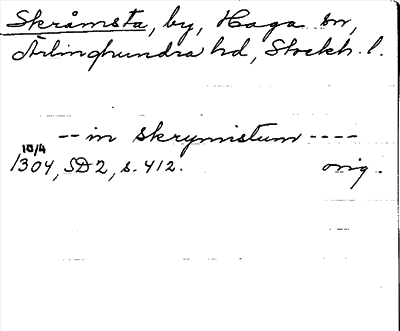 Skråmsta, by, Haga sn,
Ärlinghundra hd, Stockh. l.
-- in skrymistum ----
10/4
1304, SD 2, s. 412. orig.